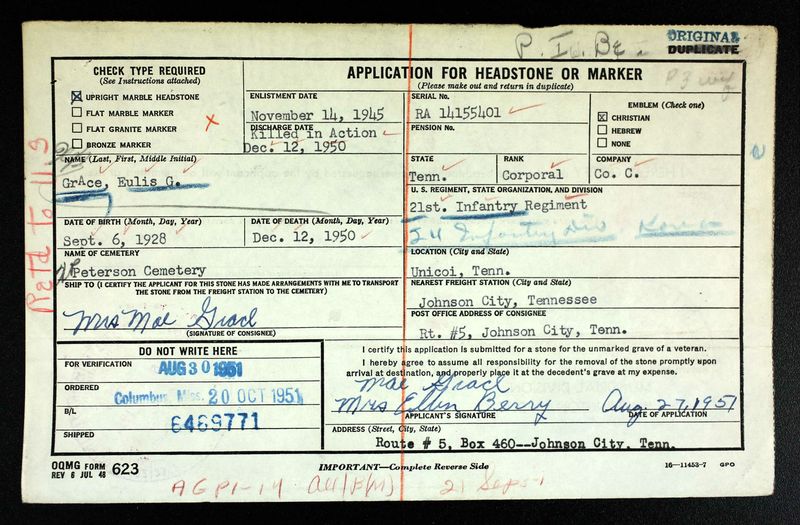 P. I. Be
ORIGINAL
DUPLICATE
CHECK TYPE REQUIRED
(See Instructions attached)
☒ UPRIGHT MARBLE HEADSTONE
☐ FLAT MARBLE MARKER
☐ FLAT GRANITE MARKER
☐ BRONZE MARKER
X
APPLICATION FOR HEADSTONE OR MARKER
(Please make out and return in duplicate)
ENLISTMENT DATE
November 14, 1945
DISCHARGE DATE
Killed in Action
Dec. 12, 1950
SERIAL No.
RA 14155401
PENSION No.
EMBLEM (Check one)
☒ CHRISTIAN
☐ HEBREW
☐ NONE
NAME (Last, First, Middle Initial)
GrAce, Eulis G.
STATE
Tenn.
RANK
Corporal
COMPANY
Co. C.
U. S. REGIMENT, STATE ORGANIZATION, AND DIVISION
21st. Infantry Regiment
24 Infantry Div Korea
DATE OF BIRTH (Month, Day, Year)
Sept. 6, 1928
DATE OF DEATH (Month, Day, Year)
Dec. 12, 1950
NAME OF CEMETERY
Peterson Cemetery
LOCATION (City and State)
Unicoi, Tenn.
SHIP TO (I CERTIFY THE APPLICANT FOR THIS STONE HAS MADE ARRANGEMENTS WITH ME TO TRANSPORT
THE STONE FROM THE FREIGHT STATION TO THE CEMETERY)
Mrs Mae Grace
(SIGNATURE OF CONSIGNEE)
NEAREST FREIGHT STATION (City and State)
Johnson City, Tennessee
POST OFFICE ADDRESS OF CONSIGNEE
Rt. #5, Johnson City, Tenn.
DO NOT WRITE HERE
FOR VERIFICATION
AUG 30 1951
ORDERED
Columbus, Miss. 20 OCT 1951
B/L
6469771
SHIPPED
I certify this application is submitted for a stone for the unmarked grave of a veteran.
I hereby agree to assume all responsibility for the removal of the stone promptly upon
arrival at destination, and properly place it at the decedent's grave at my expense.
Mae Grace
Mrs Ellin Berry
Aug. 27, 1951
APPLICANT'S SIGNATURE
DATE OF APPLICATION
ADDRESS (Street, City, State)
Route # 5, Box 460--Johnson City, Tenn.
OQMG FORM
REV 6 JUL 48
623
IMPORTANT—Complete Reverse Side
16—11453-7 GPO